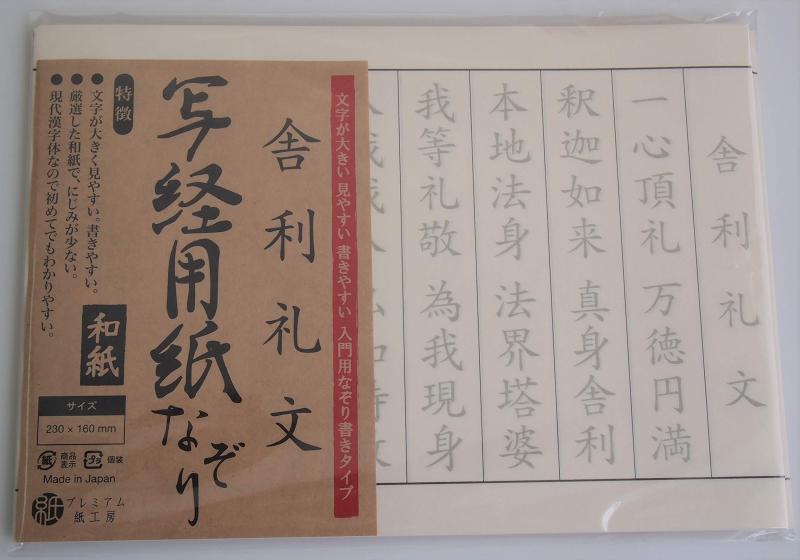 舎利礼文
一心頂礼 万徳円満
釈迦如来 真身舎利
本地法身 法界塔婆
我等礼敬 為我現身
文字が大きい 見やすい 書きやすい 入門用なぞり書きタイプ
舎利礼文
写経用紙なぞり
特徴
●文字が大きく見やすい。書きやすい。
●厳選した和紙で、にじみが少ない。
●現代漢字体なので初めてでもわかりやすい。
和紙
サイズ
230 × 160 mm
紙 商品表示 プラ 個装
Made in Japan
紙 プレミアム
紙工房